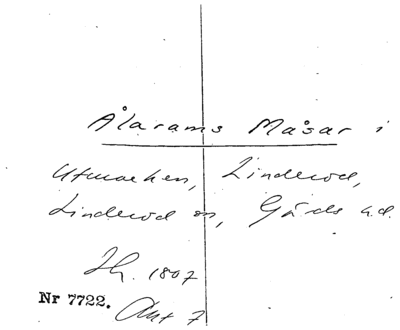 Ålarams Måsar i
Utmarken, Linderöd,
Linderöd sn, Gärds hd.
1807
Nr 7722.
Akt 7